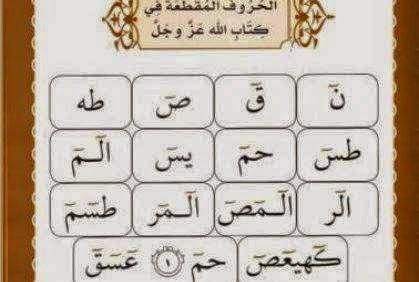 الحُرُوفُ المُقَطَّعَةُ فِي
كِتَابِ اللهِ عَزَّ وَجَلَّ
نٓ قٓ صٓ طه
طسٓ حمٓ يسٓ الٓمٓ
الٓر الٓمٓصٓ الٓمٓر طسٓمٓ
كٓهيعٓصٓ حمٓ ۝١ عٓسٓقٓ